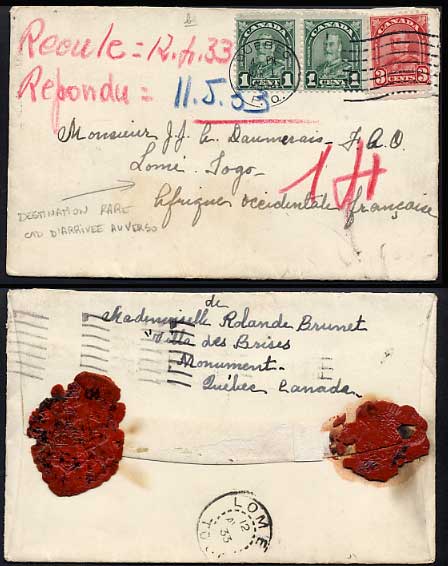 b
Recu le = 12.4.33
Repondu = 11.5.33
QUEBEC
P.Q.
CANADA
1 CENT 1
CANADA
1 CENT 1
CANADA
3 CENTS 3
Monsieur J.J. A. Daumerais - F.A.O.
Lomé. Togo -
Afrique occidentale française
DESTINATION RARE
CAD D'ARRIVEE AU VERSO
de
Mademoiselle Rolande Brunet
Villa des Brises
Monument -
Québec Canada -
LOME
12
33
TO